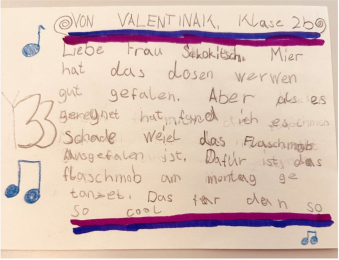 VON VALENTINA K, Klase 2b
Liebe Frau Schokitsch. Mier
hat das dosen werwen
gut gefalen. Aber als es
geregnet hat fand ich es
Schade weiel das Flaschmob
Ausgefalen ist. Dafür ist das
flaschmob am montag ge
tanzet. Das war dan so
so cool